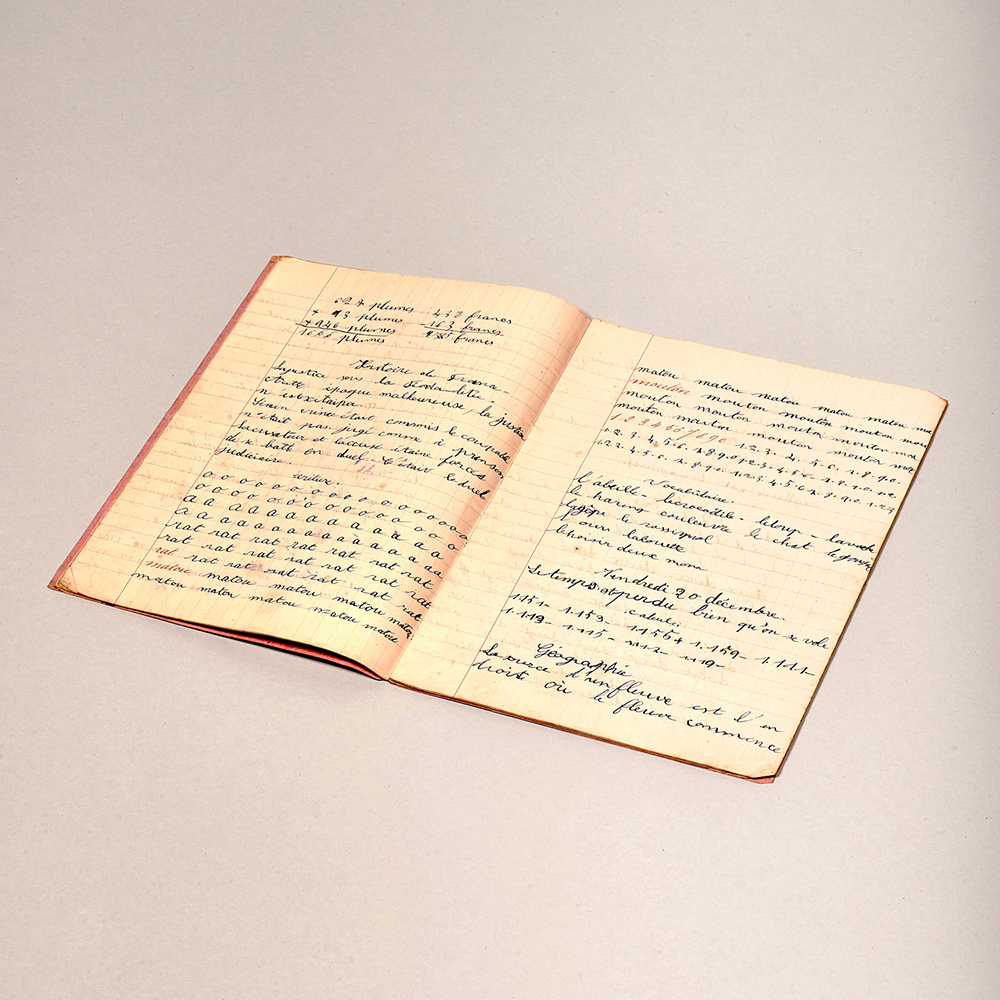 plumes 438 francs
+ 93 plumes - 163 francs
+ 946 plumes francs
plumes
Histoire de France
La justice sous la féodalité.
époque malheureuse, la justice
n'
crime était commis le coupable
n'était pas jugé comme à présent
L'accusateur et l'accusé étaient forcés
de se battre en duel. C'était le duel
judiciaire.
écriture
o o o o o o o o o o o o o
o o o o o o o o o o o o o
a a a a a a a a a a a a
a a a a a a a a a a a a
rat rat rat rat rat rat rat
rat rat rat rat rat rat rat
rat rat rat rat rat rat rat
matou matou matou matou matou
matou matou matou matou matou
matou matou matou matou ma
mouton mouton mouton mouton mou
mouton mouton mouton mouton mou
mouton mouton mouton mouton mou
1 2 3 4 5 6 7 8 9 0 1.2.3.4.5.6.7.8.9.0.
1.2.3.4.5.6.7.8.9.0.1.2.3.4.5.6.7.8.9.0.1.2
1.2.3.4.5.6.7.8.9.0.1.2.3.4.5.6.7.8.9.0.1.2.3
Vocabulaire.
L'abeille - le crocodile - le loup - la vache
le hareng couleuvre le chat
le rossignol
ours
Vendredi 20 décembre.
Le temps est perdu bien qu'on ne
calcul
1151- 1.153- 1155+ 1.159- 1.111-
1.113- 1.115- 1119-
Géographie
La source d'un fleuve est l'en
droit où le fleuve commence